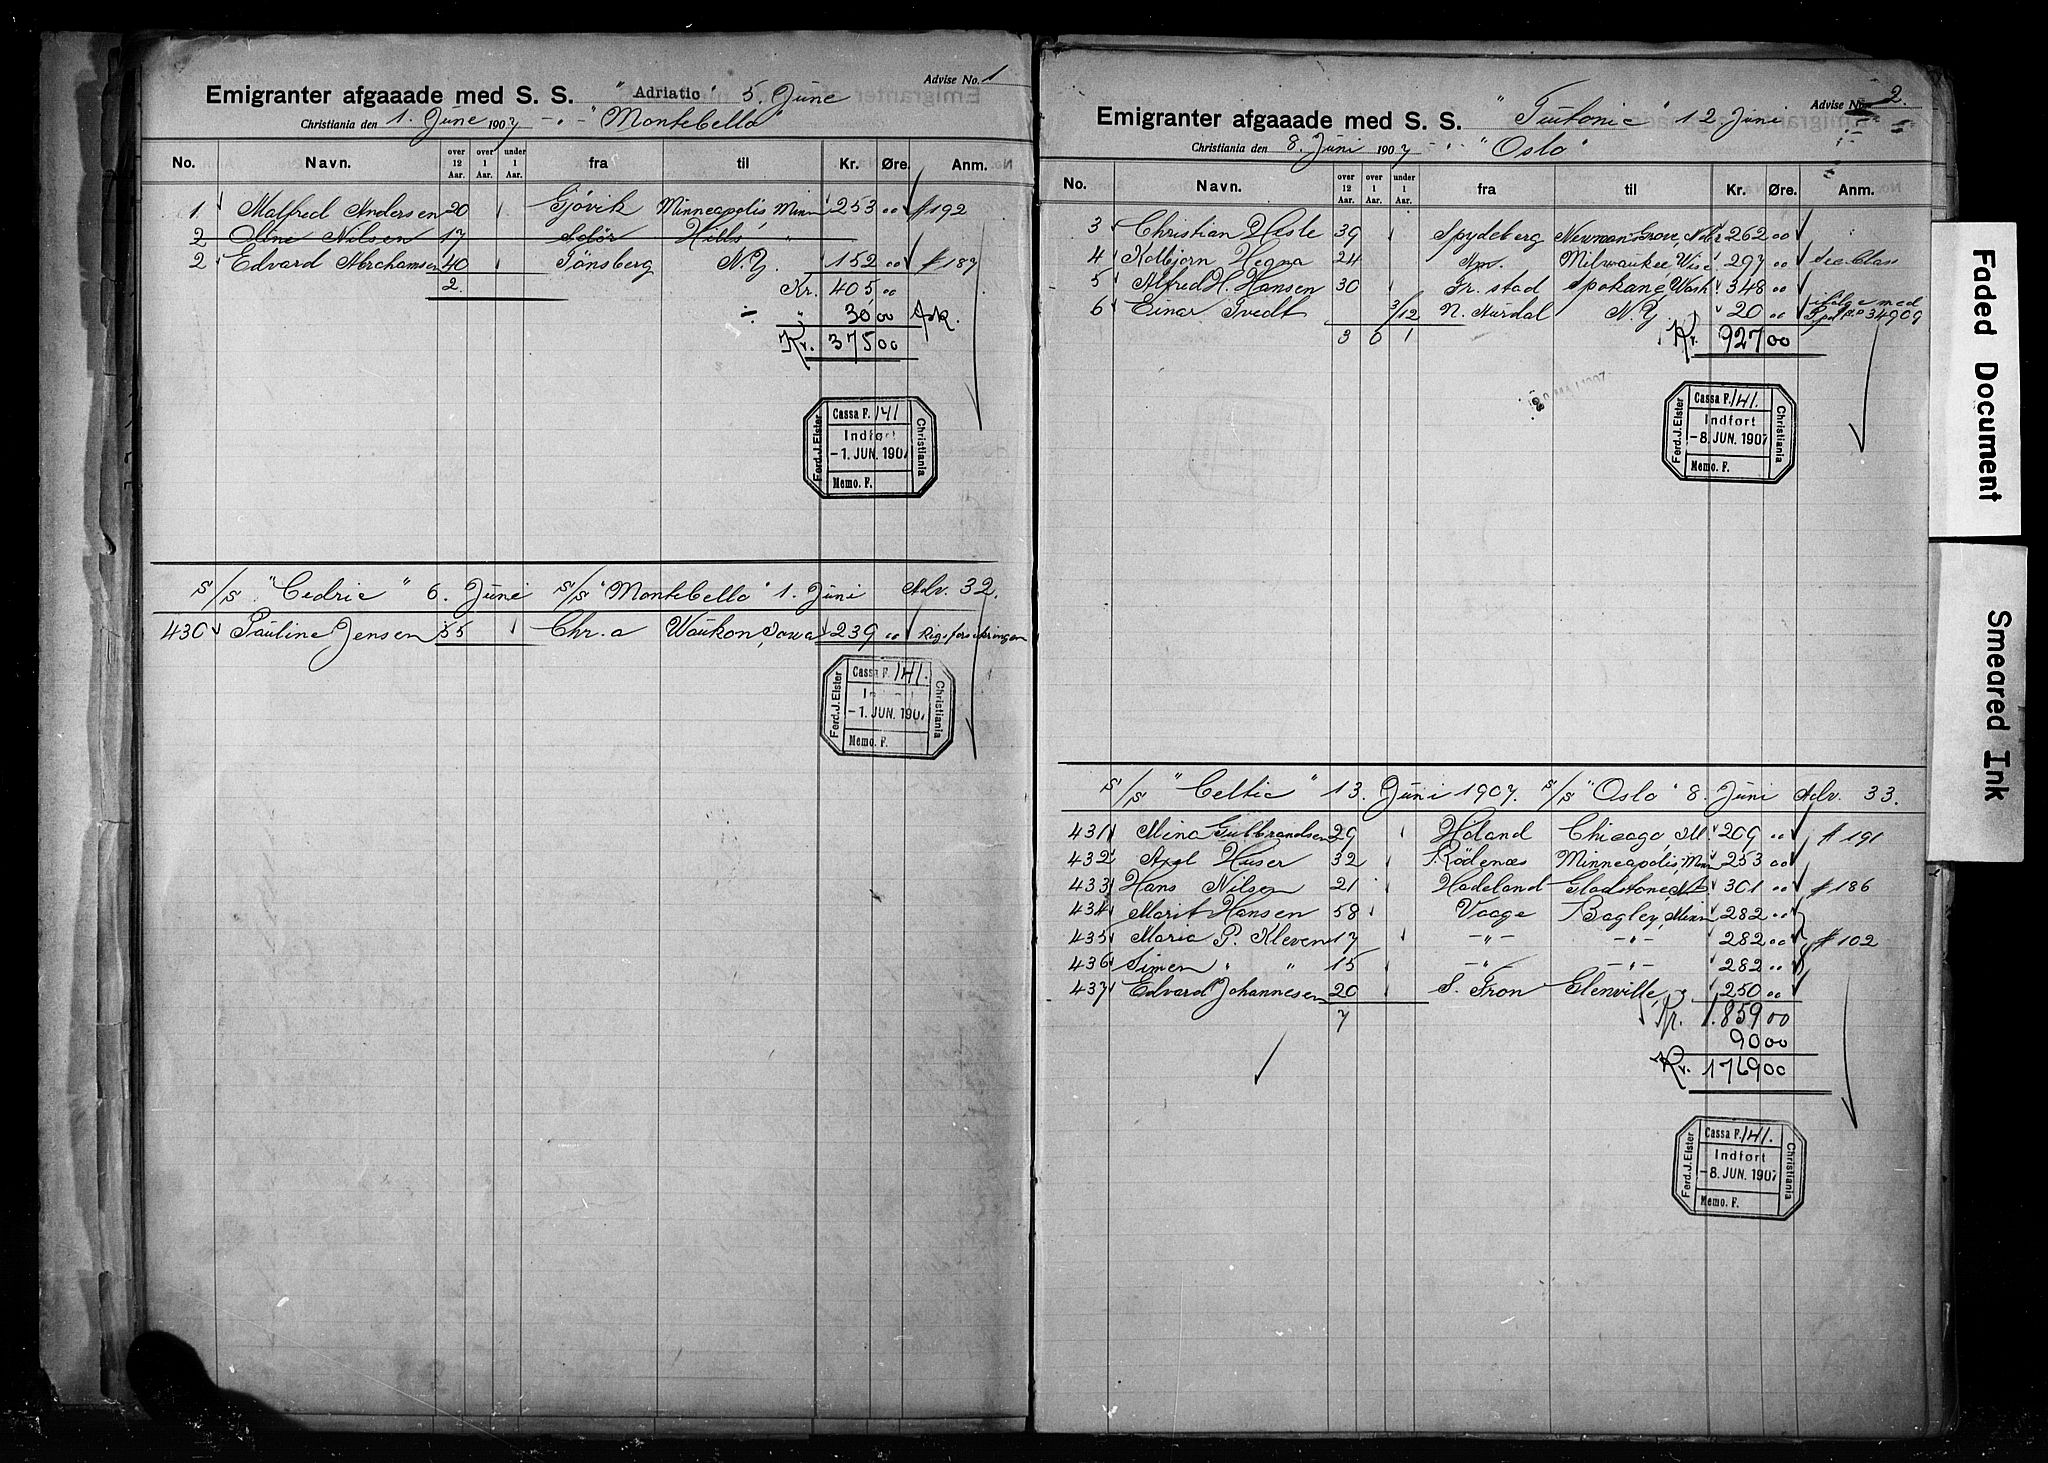 Advise No. 1
Emigranter afgaaade med S. S. "Adriatic" 5. June
Christiania den 1. June 1907 -"- "Montebello"
No. Navn. over 12 Aar. over 1 Aar. under 1 Aar. fra til Kr. Øre. Anm.
1 Malfred Andersen 20 Gjövik Minneapolis, Minn 253 00 # 192
2 Nilsen 17 Hills "
2 Edvard Abrahamsen 40 Tönsberg N.Y. 152 00 # 187
2 Kr. 405 00
÷ " 30 00
Kr. 375 00
Ferd. J. Elster
Cassa F. 141
Indført
-1. JUN. 1907
Memo. F.
Christiania
s/s "Cedric" 6. June s/s "Montebello" 1. Juni Adv. 32.
430 Pauline Jensen 55 Chr.a Waukon, Iowa 239 00
Ferd. J. Elster
Cassa F. 141.
-1. JUN. 1907
Memo. F.
Christiania
Advise No. 2.
Emigranter afgaaade med S. S. "Teutonic" 12 Juni
Christiania den 8. Juni 1907 -"- "Oslo"
No. Navn. over 12 Aar. over 1 Aar. under 1 Aar. fra til Kr. Øre. Anm.
3 Christian Hesle 39 Spydeberg Newman Grove, Nebr 262 00
4 Kolbjörn Hegna 24 Am. Milwaukee, Wisc 297 00
5 Alfred H. Hansen 30 Fr. stad Spokane, Wash 348 00
6 Einar Tvedt 3/12 N. Aurdal N.Y. 20 00 ifölge med 34909
3 0 1 Kr. 927 00
Ferd. J. Elster
Cassa F. 141.
Indført
-8. JUN. 1907
Memo. F.
Christiania
s/s "Celtic" 13. Juni 1907. s/s "Oslo" 8. Juni Adv. 33.
431 Mina Gulbrandsen 29 Höland Chicago, Ill. 209 00 # 191
432 Axel Huser 32 Rödenæs Minneapolis, Minn 253 00
433 Hans Nilsen 21 Hadeland Gladstone, 301 00 # 186
434 Marit Hansen 58 Vaage Bagley, Minn 282 00
435 Maria P. Kleven 17 -"- -"- 282 00 # 102
436 Simen " " 15 -"- -"- 282 00
437 Edvard Johannesen 20 S. Fron Glenville, " 250 00
7 Kr. 1.859 00
90 00
Kr. 1769 00
Ferd. J. Elster
Cassa F. 141.
Indført
-8. JUN. 1907
Memo. F.
Christiania
Faded Document
Smeared Ink